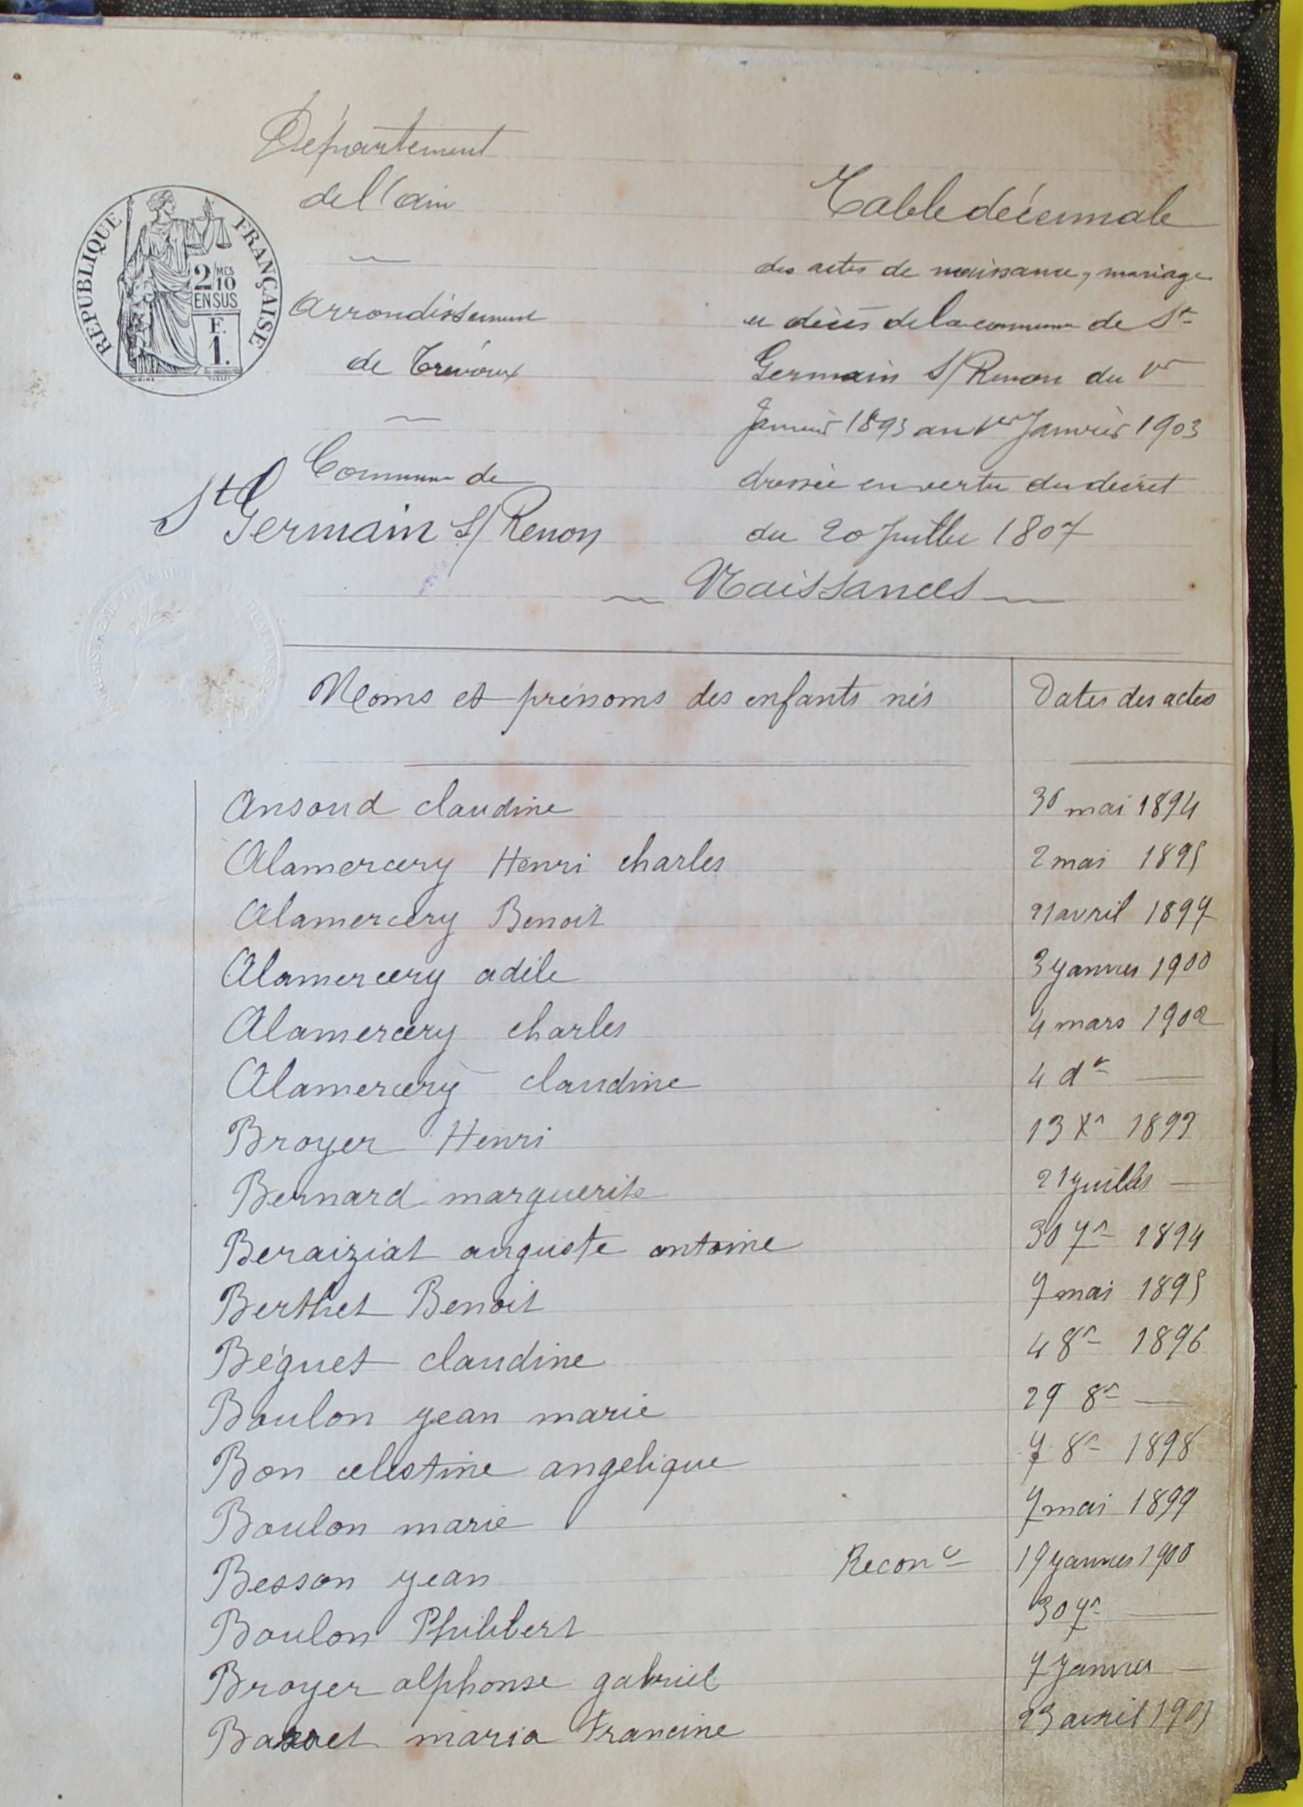 Département
de l'ain
Arrondissement
de Trévoux
Commune de
St Germain S/ Renon
RÉPUBLIQUE FRANÇAISE
2/10 MES
EN SUS
F.
1.
Table décennale
des actes de naissance, mariage
et décès de la commune de St
Germain S/ Renon du 1er
Janvier 1893 au 1er Janvier 1903
dressée en vertu du décret
du 20 Juillet 1807
Naissances
Noms et prénoms des enfants nés Dates des actes
Ansoud claudine 30 mai 1894
Alamercery Henri charles 2 mai 1895
Alamercery Benoit 21 avril 1897
Alamercery adèle 3 janvier 1900
Alamercery charles 4 mars 1902
Alamercery claudine 4 do
Broyer Henri 13 Xre 1893
Bernard marguerite 21 juillet
Beraiziat auguste antoine 30 7re 1894
Berthet Benoit 7 mai 1895
Béguet claudine 4 8re 1896
Boulon jean marie 29 8re
Bon celestine angelique 7 8re 1898
Boulon marie 7 mai 1899
Besson jean Recon ce 19 janvier 1900
Boulon Philibert 30 7re
Broyer alphonse gabriel 7 janvier
Basset maria Francine 23 avril 1901